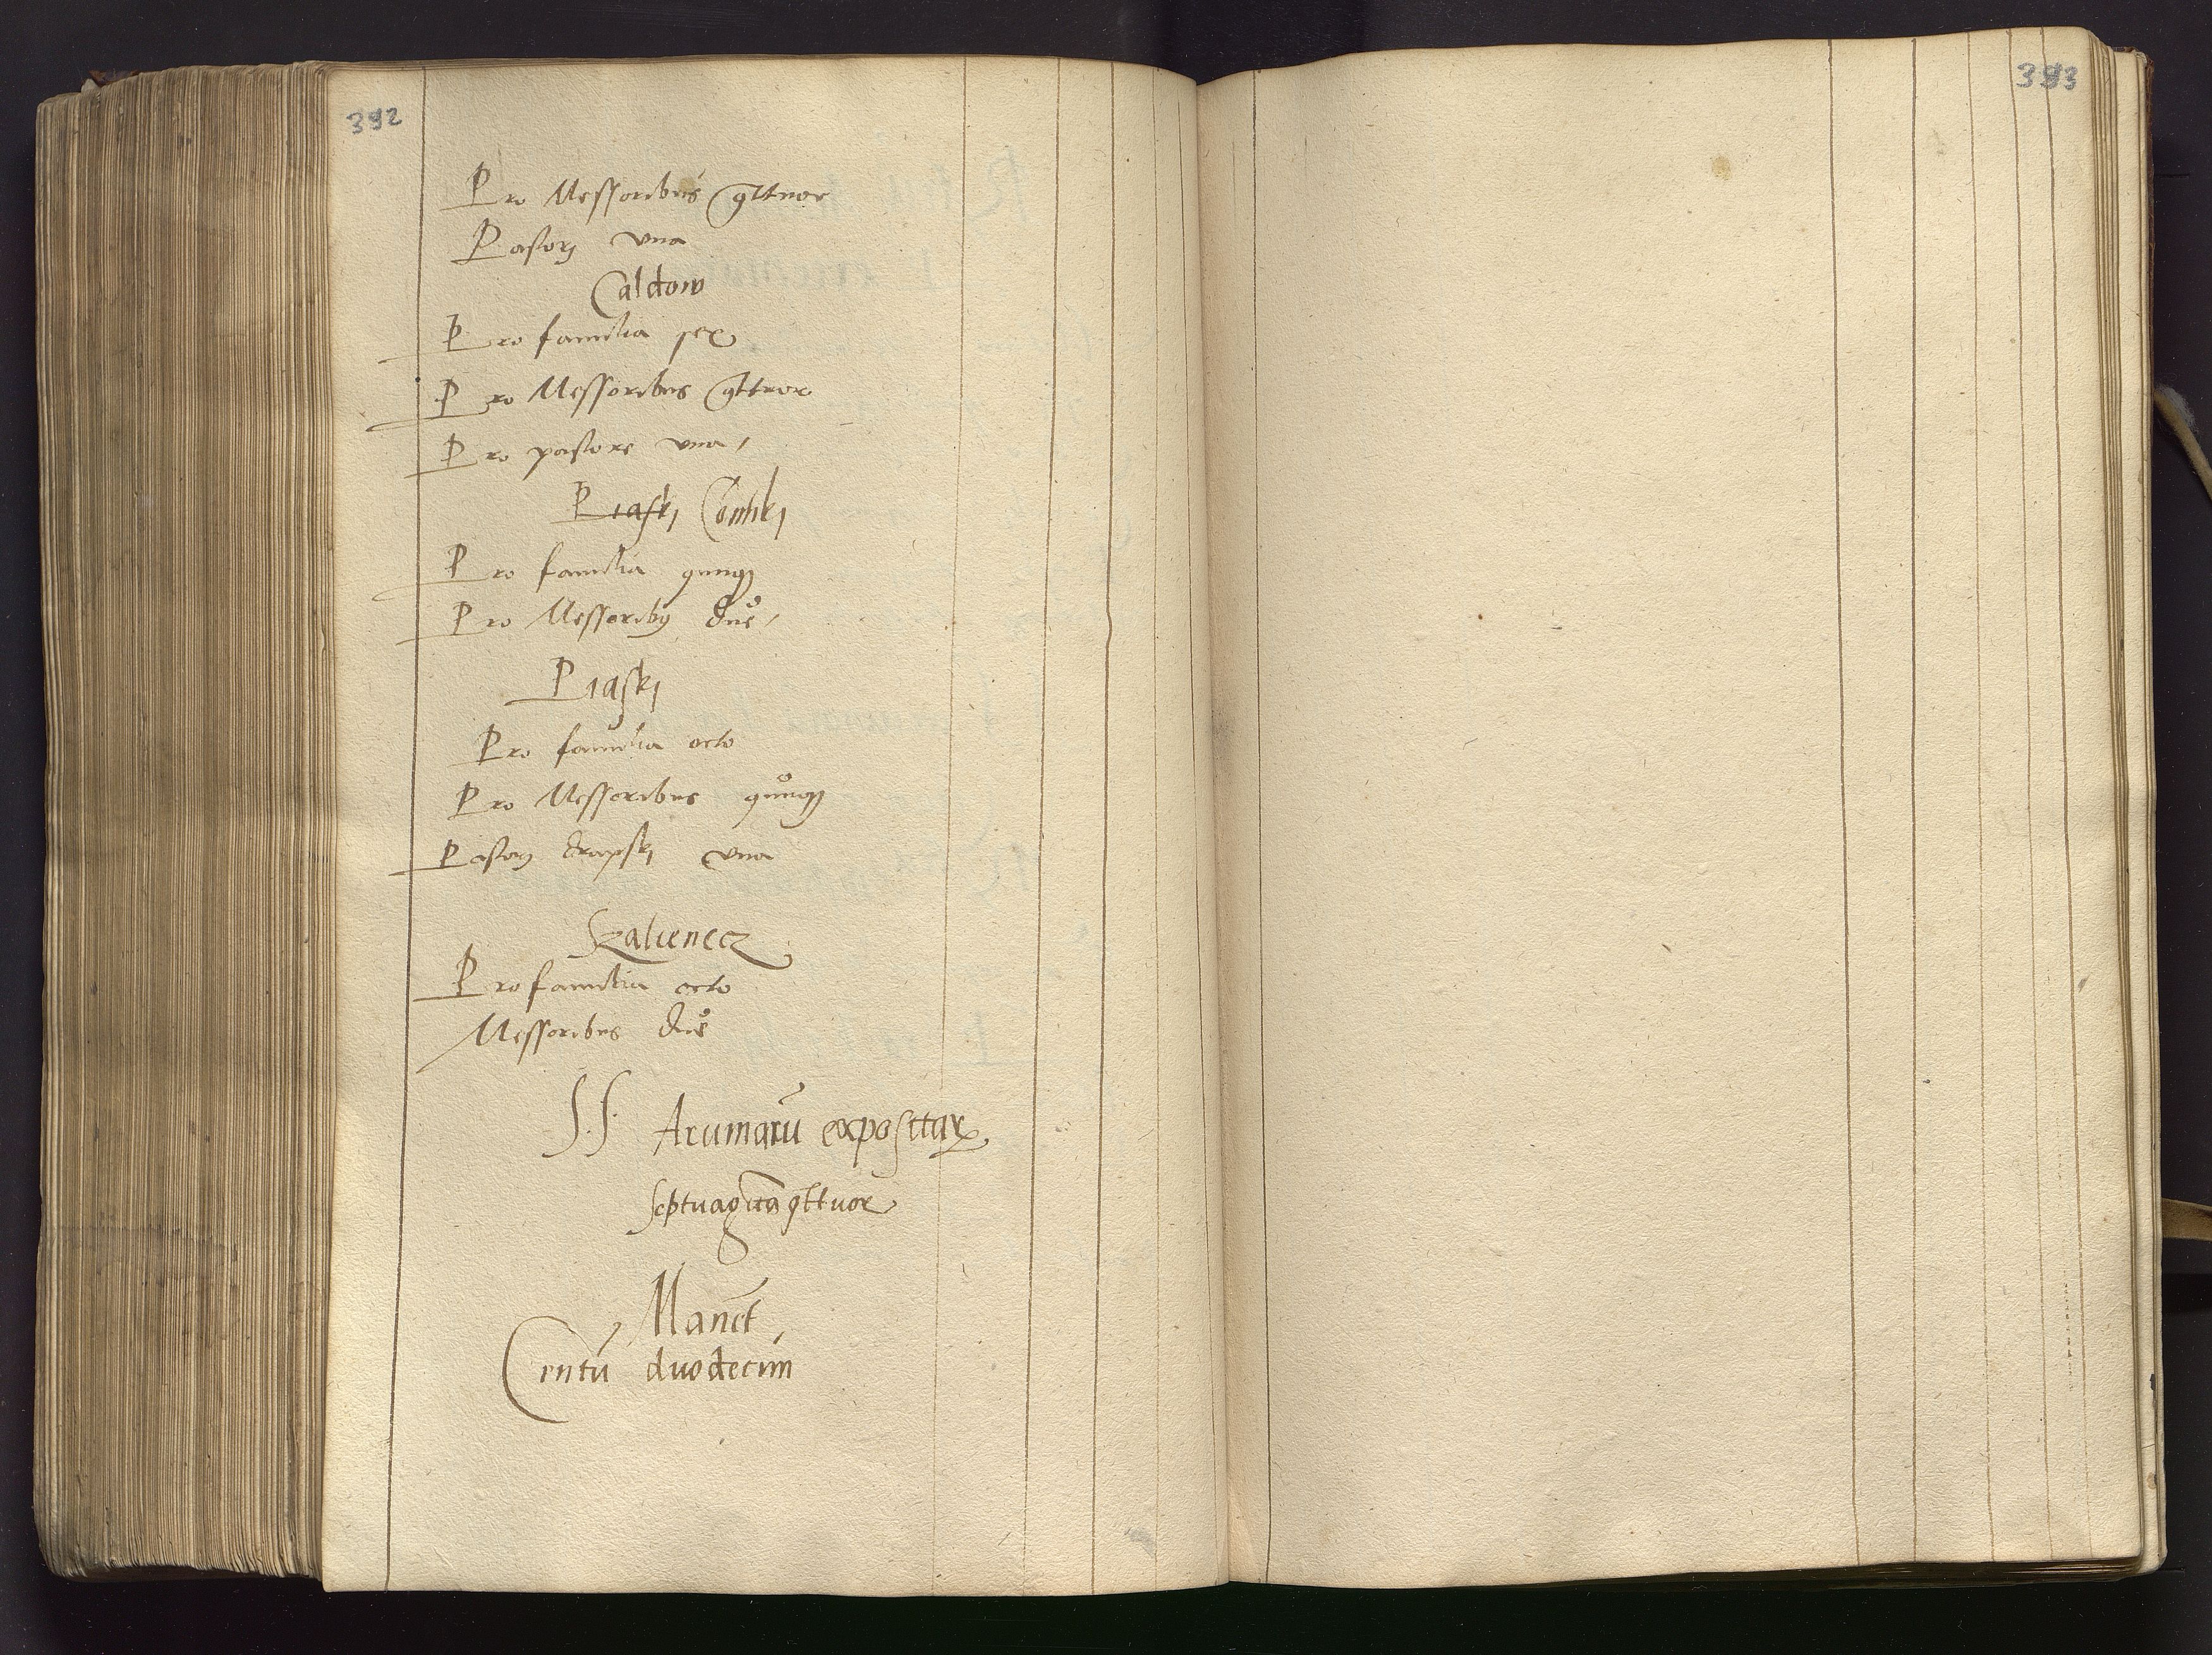 392
Pro Messoribus q̃ttuor
Pastorj vna
Caldow
Pro familia sex
Pro Messoribus q̃ttuor
Pro pastore vna,
Piaskj
Pro familia quinqꝫ
Pro Messoribꝰ due,
Piaskj
Pro familia octo
Pro Messoribus quinqꝫ
Pastorj vna
Szalienecz
Pro familia octo
Messoribus due
S.S. Arumarū expositarꝝ
septuagīta q̃ttuor
Manēt
Centū duodecim
393